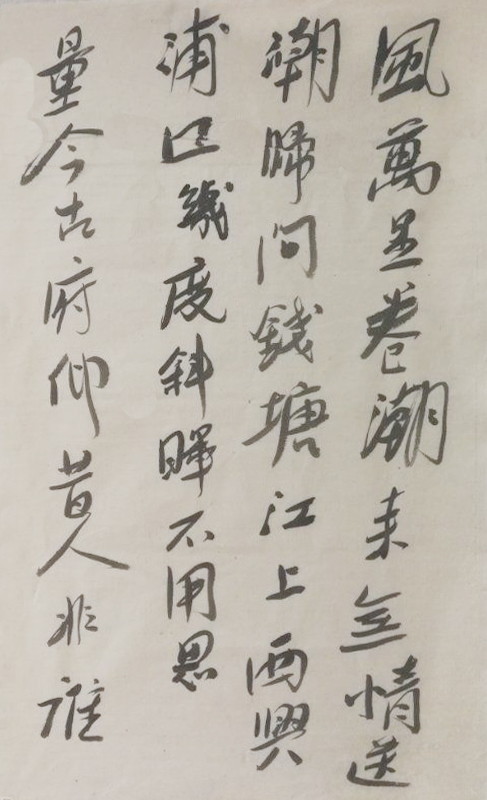 風萬里卷潮来無情送
潮歸問錢塘江上西興
浦口幾度斜暉不用思
量今古府仰昔人非誰